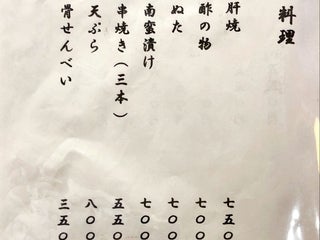 料理
肝焼 七五〇
酢の物 七〇〇
ぬた 七〇〇
南蛮漬け 七〇〇
串焼き(三本) 五五〇
天ぷら 八〇〇
骨せんべい 三五〇